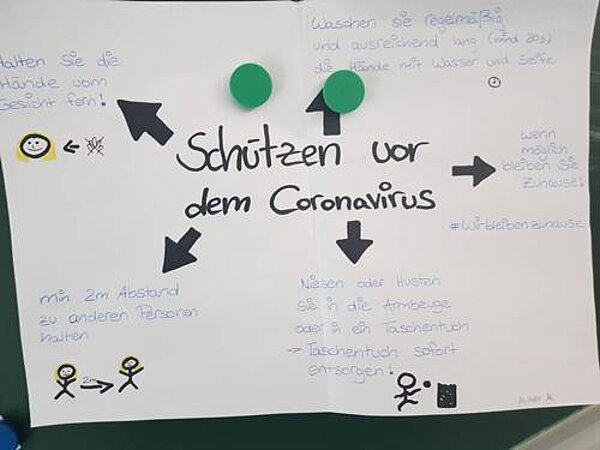 Halten Sie die
Hände vom
Gesicht fern!
Waschen sie regelmäßig
und ausreichend lang (mind 20s)
die Hände mit Wasser und Seife
Schützen vor
dem Coronavirus
wenn
möglich
bleiben Sie
Zuhause!
#wirbleibenzuhause
min 2m Abstand
zu anderen Personen
halten
2m
Niesen oder Husten
sie in die Armbeuge
oder in ein Taschentuch
→ Taschentuch sofort
entsorgen!